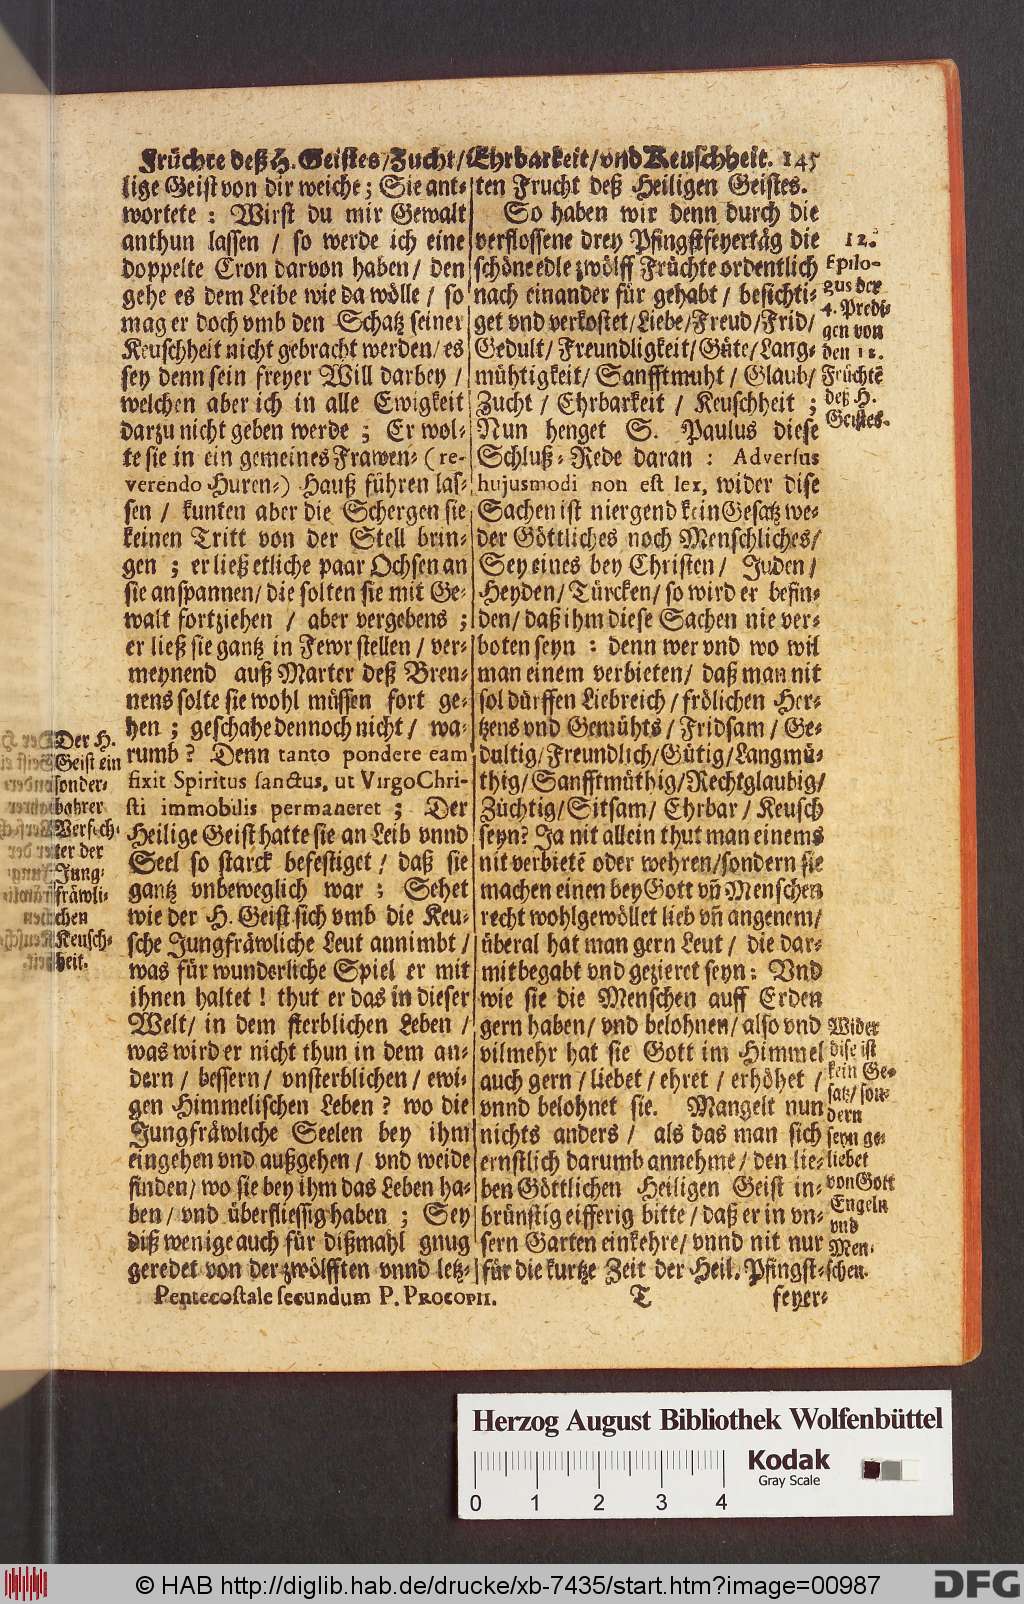 Früchte deß H. Geistes/Zucht/Ehrbarkeit/vnd Keuschheit. 145
lige Geist von dir weiche; Sie ant-
wortete : Wirst du mir Gewalt
anthun lassen / so werde ich eine
doppelte Cron darvon haben / den
gehe es dem Leibe wie da wölle / so
mag er doch vmb den Schatz seiner
Keuschheit nicht gebracht werden/ es
sey denn sein freyer Will darbey /
welchen aber ich in alle Ewigkeit
darzu nicht geben werde ; Er wol-
te sie in ein gemeines Frawen- (re-
verendo Huren-) Hauß führen las-
sen / kunten aber die Schergen sie
keinen Tritt von der Stell brin-
gen ; er ließ etliche paar Ochsen an
sie anspannen/ die solten sie mit Ge-
walt fortziehen / aber vergebens ;
er ließ sie gantz in Fewr stellen / ver-
meynend auß Marter deß Bren-
nens solte sie wohl müssen fort ge-
hen ; geschahe dennoch nicht / wa-
rumb ? Denn tanto pondere eam
fixit Spiritus sanctus, ut Virgo Chri-
sti immobilis permaneret ; Der
Heilige Geist hatte sie an Leib vnnd
Seel so starck befestiget / daß sie
gantz vnbeweglich war ; Sehet
wie der H. Geist sich vmb die Keu-
sche Jungfräwliche Leut annimbt /
was für wunderliche Spiel er mit
ihnen haltet ! thut er das in dieser
Welt/ in dem sterblichen Leben /
was wird er nicht thun in dem an-
dern / bessern / vnsterblichen / ewi-
gen Himmelischen Leben ? wo die
Jungfräwliche Seelen bey ihm
eingehen vnd außgehen / vnd weide
finden/ wo sie bey ihm das Leben ha-
ben / vnd überfliessig haben ; Sey
diß wenige auch für dißmahl gnug
geredet von der zwölfften vnnd letz-
Der H.
Geist ein
sonder-
bahrer
Verfech-
ter der
Jung-
fräwli-
chen
Keusch-
heit.
ten Frucht deß Heiligen Geistes.
So haben wir denn durch die
verflossene drey Pfingstfeyertäg die
schöne edle zwölff Früchte ordentlich
nach einander für gehabt / besichti-
get vnd verkostet/Liebe/Freud/Frid/
Gedult/ Freundligkeit/Güte/Lang-
mühtigkeit/ Sanfftmuht / Glaub/
Zucht / Ehrbarkeit / Keuschheit ;
Nun henget S. Paulus diese
Schluß-Rede daran : Adversus
hujusmodi non est lex, wider dise
Sachen ist niergend kein Gesatz we-
der Göttliches noch Menschliches/
Sey eines bey Christen / Juden /
Heyden/ Türcken/ so wird er befin-
den/ daß ihm diese Sachen nie ver-
boten seyn : denn wer vnd wo wil
man einem verbieten/ daß man nit
sol dürffen Liebreich / frölichen Her-
tzens vnd Gemühts / Fridsam / Ge-
dultig/ Freundlich/ Gütig/ Langmü-
thig/ Sanfftmüthig/ Rechtglaubig/
Züchtig/ Sitsam/ Ehrbar / Keusch
seyn? Ja nit allein thut man einems
nit verbietē oder wehren/sondern sie
machen einen bey Gott vn̄ Menschen
recht wohlgewöllet lieb vn̄ angenem/
überal hat man gern Leut / die dar-
mit begabt vnd gezieret seyn : Vnd
wie sie die Menschen auff Erden
gern haben/ vnd belohnen/ also vnd
vilmehr hat sie Gott im Himmel
auch gern / liebet / ehret / erhöhet /
vnnd belohnet sie. Mangelt nun
nichts anders / als das man sich
ernstlich darumb annehme/ den lie-
ben Göttlichen Heiligen Geist in-
brünstig eifferig bitte / daß er in vn-
sern Garten einkehre/ vnnd nit nur
für die kurtze Zeit der Heil. Pfingst-
12.
Epilo-
gus der
4. Predi-
gen von
den 12.
Früchtē
deß H.
Geistes.
Wider
dise ist
kein Ge-
satz/ son-
dern
seyn ge-
liebet
von Gott
Engeln
vnd
Men-
schen.
Pentecostale secundum P. PROCOPII.
T
feyer-
Herzog August Bibliothek Wolfenbüttel
Kodak
Gray Scale
0 1 2 3 4
© HAB http://diglib.hab.de/drucke/xb-7435/start.htm?image=00987
DFG